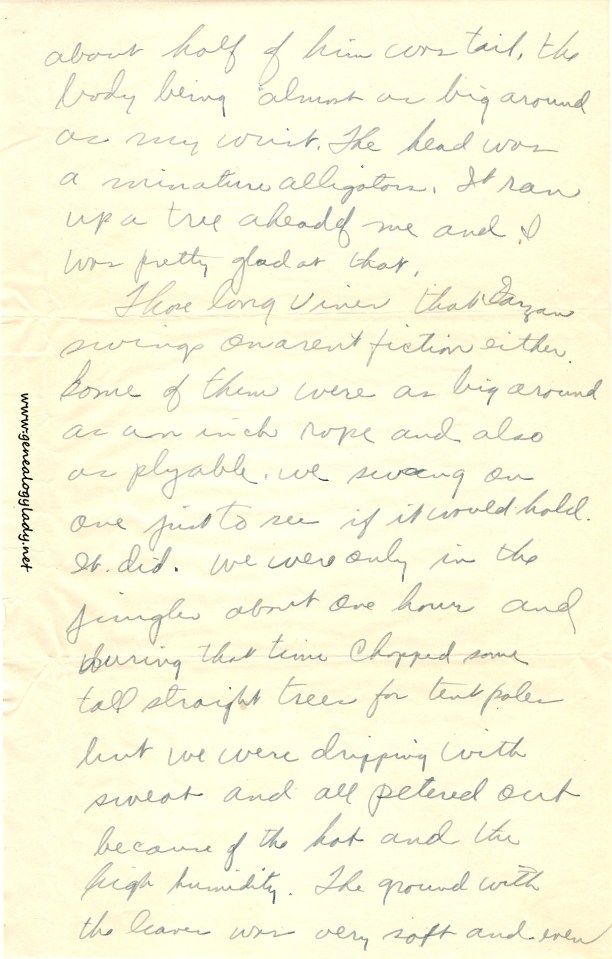 about half of him was tail, the
body being almost as big around
as my wrist. The head was
a minature alligators. It ran
up a tree ahead of me and I
was pretty glad at that.
Those long vines that Tarzan
swings on arent fiction either.
Some of them were as big around
as an inch rope and also
as plyable. we swung on
one just to see if it would hold.
It did. We were only in the
jungle about one hour and
during that time chopped some
tall straight trees for tent poles
but we were dripping with
sweat and all petered out
because of the hot and the
high humidity. The ground with
the leaves was very soft and even
www.genealogylady.net